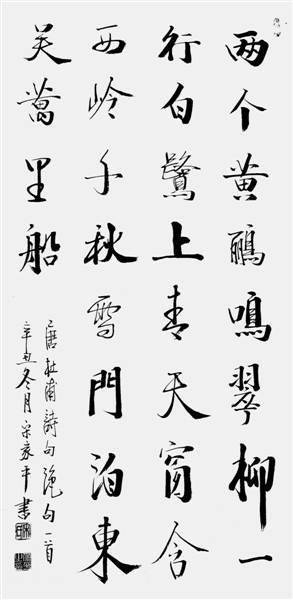 两个黄鸝鳴翠柳一
行白鷺上青天窗含
西岭千秋雪門泊東
吴萬里船
唐杜甫詩句絶句一首
辛丑冬月宋家平書